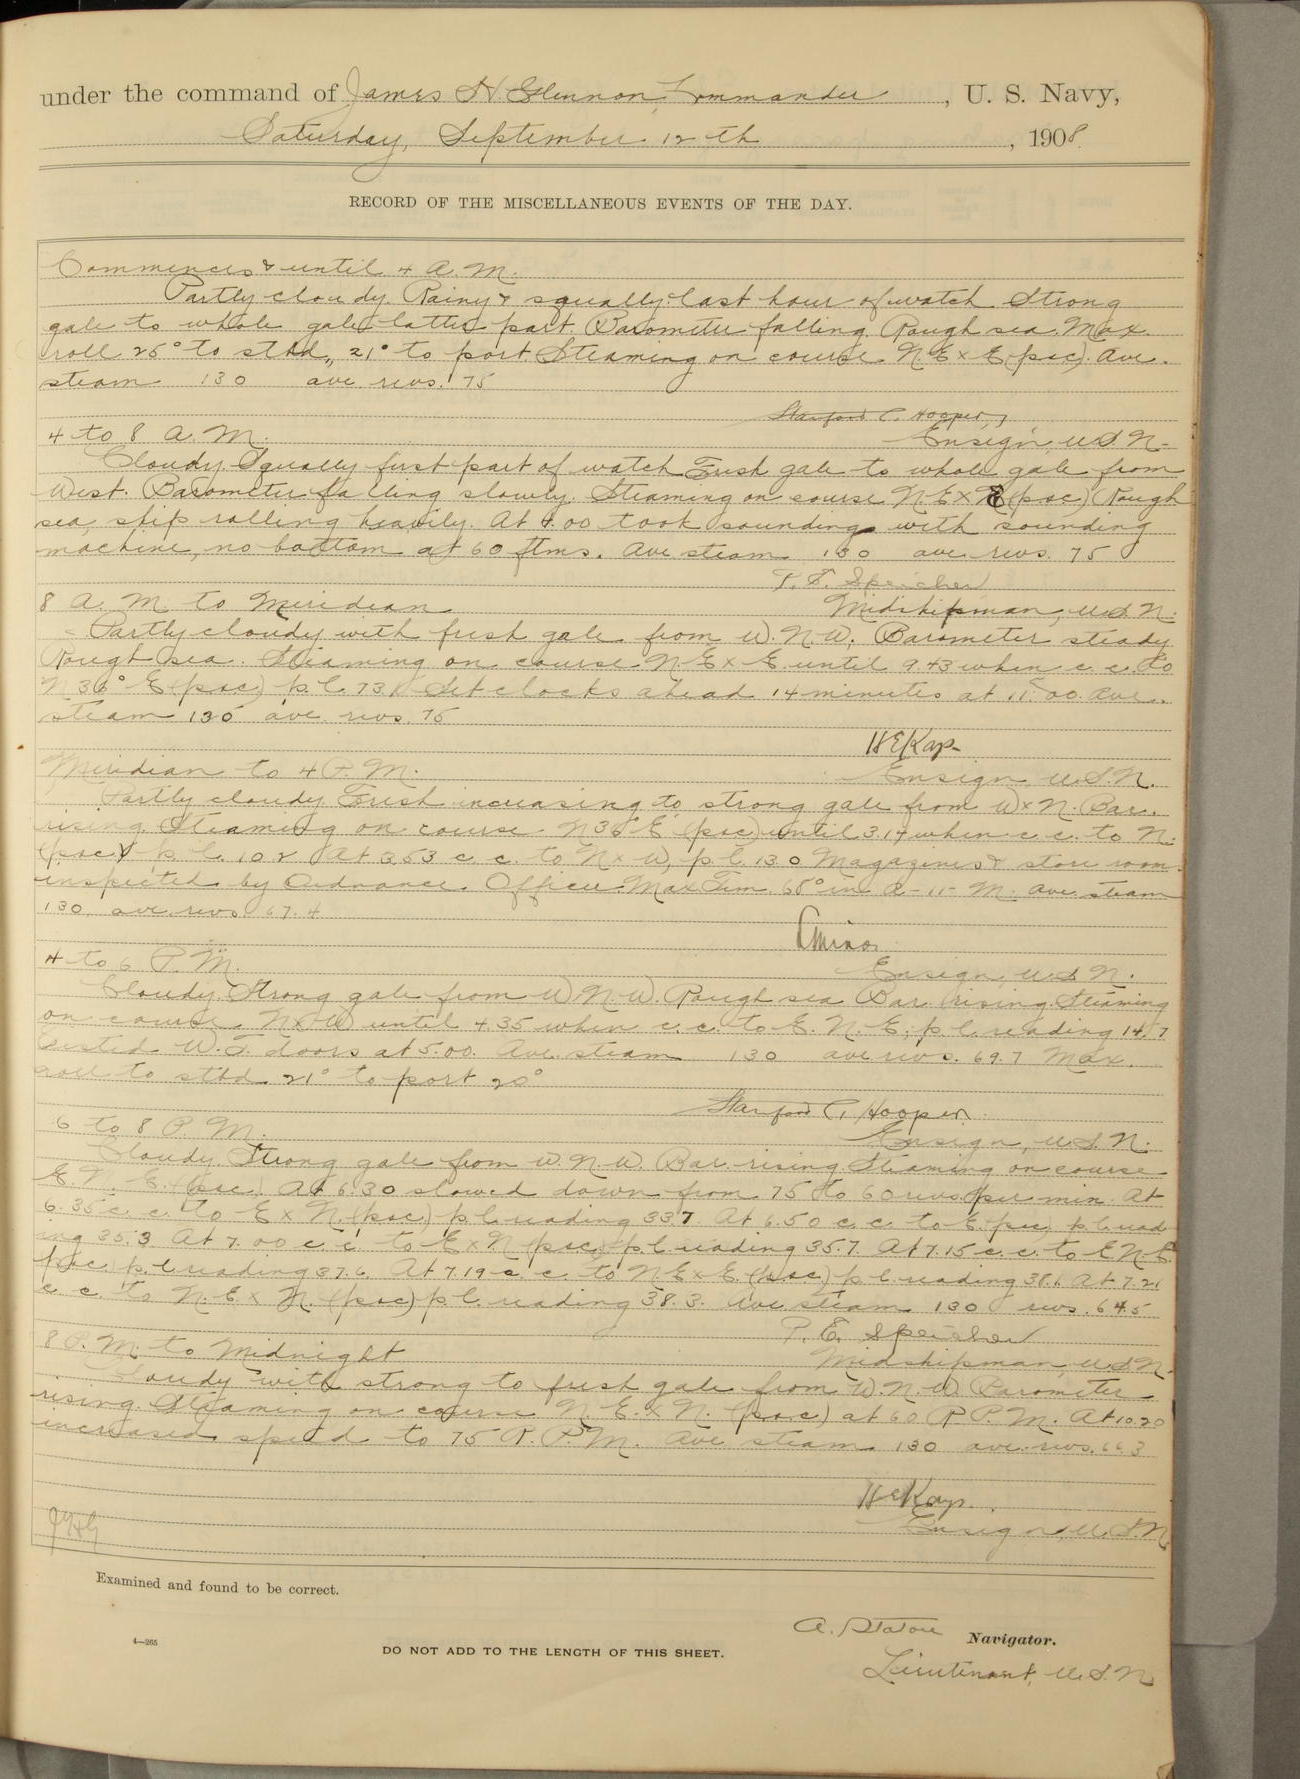 under the command of James H. Glennon, Commander, U. S. Navy,
Saturday, September 12th, 1908.
RECORD OF THE MISCELLANEOUS EVENTS OF THE DAY.
Commences & until 4 A.M.
Partly cloudy. Rainy & squally last hour of watch Strong
gale to whole gale latter part. Barometer falling. Rough sea. Max.
roll 25° to stbd., 21° to port. Steaming on course N.E x E (psc). Ave.
steam 130 ave revs. 75
Stanford C. Hooper,
4 to 8 A.M.
Ensign, U.S.N.
Cloudy. Squally first part of watch Fresh gale to whole gale from
West. Barometer falling slowly. Steaming on course N.E x E (psc) Rough
sea, ship rolling heavily. At 4.00 took sounding with sounding
machine, no bottom at 60 ftms. Ave steam 130 ave revs. 75
P. E. Speicher
8 A.M. to Meridian
Midshipman, U.S.N.
Partly cloudy with fresh gale from W.N.W. Barometer steady
Rough sea. Steaming on course N.E x E until 9.43 when c.c. to
N 36° E (psc) p.l. 73. Set clocks ahead 14 minutes at 11.00. Ave.
steam 130 ave revs. 75
H E Kays
Meridian to 4 P.M.
Ensign U.S.N.
Partly cloudy Fresh increasing to strong gale from W x N. Bar.
rising. Steaming on course N 36° E (psc) until 3.17 when c.c. to N.
(psc) p.l. 10.2 At 3.53 c.c. to N x W, p.l. 13.0 Magazines & store room
inspected by Ordnance Officer. Max Tem. 68° in A-11-M. Ave steam
130, ave revs 67.4
4 to 6 P.M.
Ensign, U.S.N.
Cloudy. Strong gale from W.N.W. Rough sea Bar. rising Steaming
on course N x W until 4.35 when c.c. to E.N.E, p.l. reading 14.7
Tested W.T. doors at 5.00. Ave. steam 130 ave revs. 69.7 Max.
roll to stbd 21° to port 20°
Stanford C. Hooper.
6 to 8 P.M.
Ensign, U.S.N.
Cloudy. Strong gale from W.N.W. Bar. rising. Steaming on course
E.N.E. (psc). At 6.30 slowed down from 75 to 60 revs. per min. At
6.35 c.c. to E x N. (psc) p.l. reading 33.7. At 6.50 c.c. to E. (psc), p.l. read
ing 35.3 At 7.00 c.c. to E x N (psc) p.l. reading 35.7. At 7.15 c.c. to E.N.E.
(psc) p.l. reading 37.6. At 7.19 c.c. to N.E x E. (psc) p.l. reading 38.1. At 7.21
c.c. to N.E x N. (psc) p.l. reading 38.3. Ave steam 130 revs. 64.5
P. E. Speicher
8 P.M. to Midnight
Midshipman, U.S.N.
Cloudy with strong to fresh gale from W.N.W. Barometer
rising. Steaming on course N.E. x N. (psc) at 60 R.P.M. At 10.20
increased speed to 75 R.P.M. Ave steam 130 ave. revs. 66.3
H E Kays.
Ensign, U.S.N.
JHG
Examined and found to be correct.
A. Staton Navigator.
4—265
DO NOT ADD TO THE LENGTH OF THIS SHEET.
Lieutenant, U.S.N.